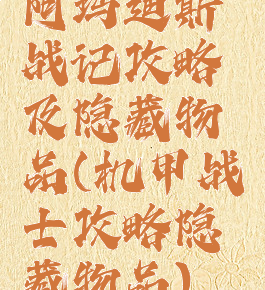 阿玛迪斯
战记攻略
及隐藏物
品(机甲战
士攻略隐
藏物品)